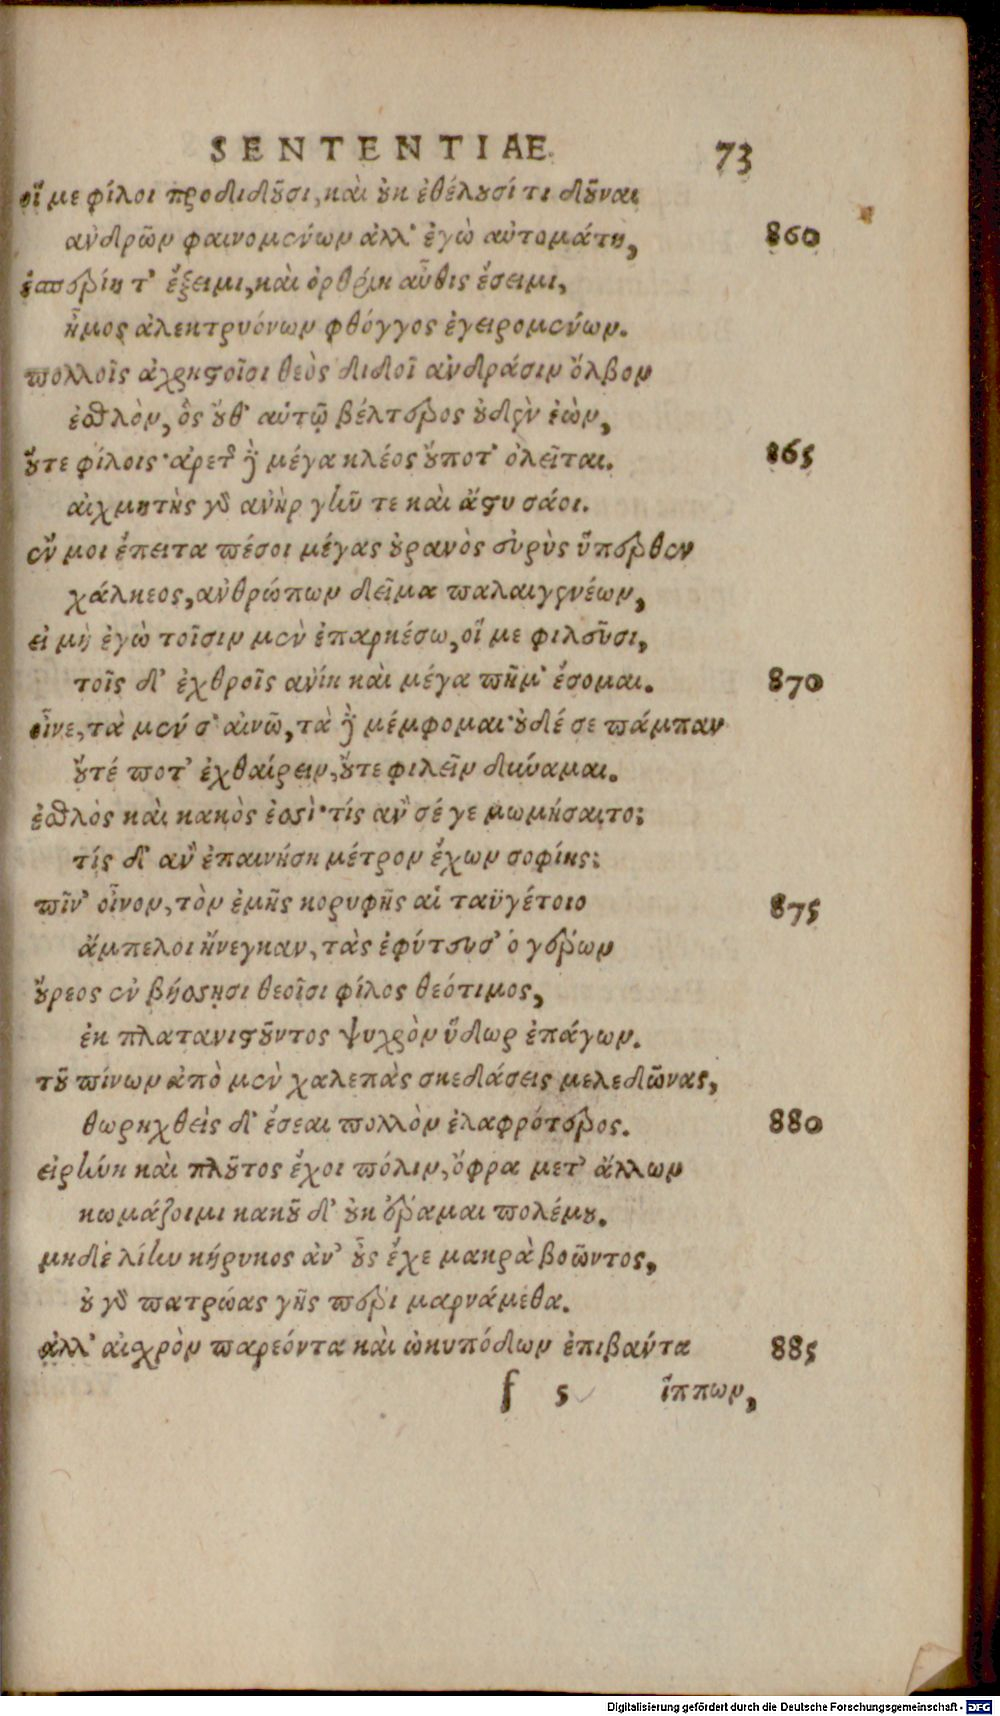 SENTENTIAE. 73
οἵ με φίλοι προδιδοῦσι, καὶ οὐκ ἐθέλουσί τι δοῦναι
ἀνδρῶν φαινομένων ἀλλ' ἐγὼ αὐτομάτη, 860
ἑσπερίη τ' ἔξειμι, καὶ ὀρθρίη αὖθις ἔσειμι,
ἦμος ἀλεκτρυόνων φθόγγος ἐγειρομένων.
πολλοῖς ἀχρήστοισι θεὸς διδοῖ ἀνδράσιν ὄλβον
ἐσθλὸν, ὃς οὔθ' αὑτῷ βέλτερος οὐδὲν ἐὼν,
οὔτε φίλοις· ἀρετῆς δὲ μέγα κλέος οὔποτ' ὀλεῖται. 865
αἰχμητὴς γὰρ ἀνὴρ γῆν τε καὶ ἄστυ σάοι.
ἔν μοι ἔπειτα πέσοι μέγας οὐρανὸς εὐρὺς ὕπερθεν
χάλκεος, ἀνθρώπων δεῖμα παλαιγενέων,
εἰ μὴ ἐγὼ τοῖσιν μὲν ἐπαρκέσω, οἵ με φιλεῦσι,
τοῖς δ' ἐχθροῖς ἀνίη καὶ μέγα πῆμ' ἔσομαι. 870
οἶνε, τὰ μέν σ' αἰνῶ, τὰ δὲ μέμφομαι· οὐδέ σε πάμπαν
οὔτέ ποτ' ἐχθαίρειν, οὔτε φιλεῖν δύναμαι.
ἐσθλὸς καὶ κακὸς ἐσσί· τίς ἂν σέ γε μωμήσαιτο;
τίς δ' ἂν ἐπαινήσῃ μέτρον ἔχων σοφίης;
πῖν' οἶνον, τὸν ἐμῆς κορυφῆς αἱ ταϋγέτοιο 875
ἄμπελοι ἤνεγκαν, τὰς ἐφύτευσ' ὁ γέρων
οὔρεος ἐν βήσσῃσι θεοῖσι φίλος θεότιμος,
ἐκ πλατανιστοῦντος ψυχρὸν ὕδωρ ἐπάγων.
τοῦ πίνων ἀπὸ μὲν χαλεπὰς σκεδάσεις μελεδῶνας,
θωρηχθεὶς δ' ἔσεαι πολλὸν ἐλαφρότερος. 880
εἰρήνη καὶ πλοῦτος ἔχοι πόλιν, ὄφρα μετ' ἄλλων
κωμάζοιμι κακοῦ δ' οὐκ ἔραμαι πολέμου.
μηδὲ λίην κήρυκος ἀν' οὖς ἔχε μακρὰ βοῶντος,
οὐ γὰρ πατρώας γῆς πέρι μαρνάμεθα.
ἀλλ' αἰσχρὸν παρεόντα καὶ ὠκυπόδων ἐπιβάντα 885
f 5 ἵππων,
Digitalisierung gefördert durch die Deutsche Forschungsgemeinschaft - DFG